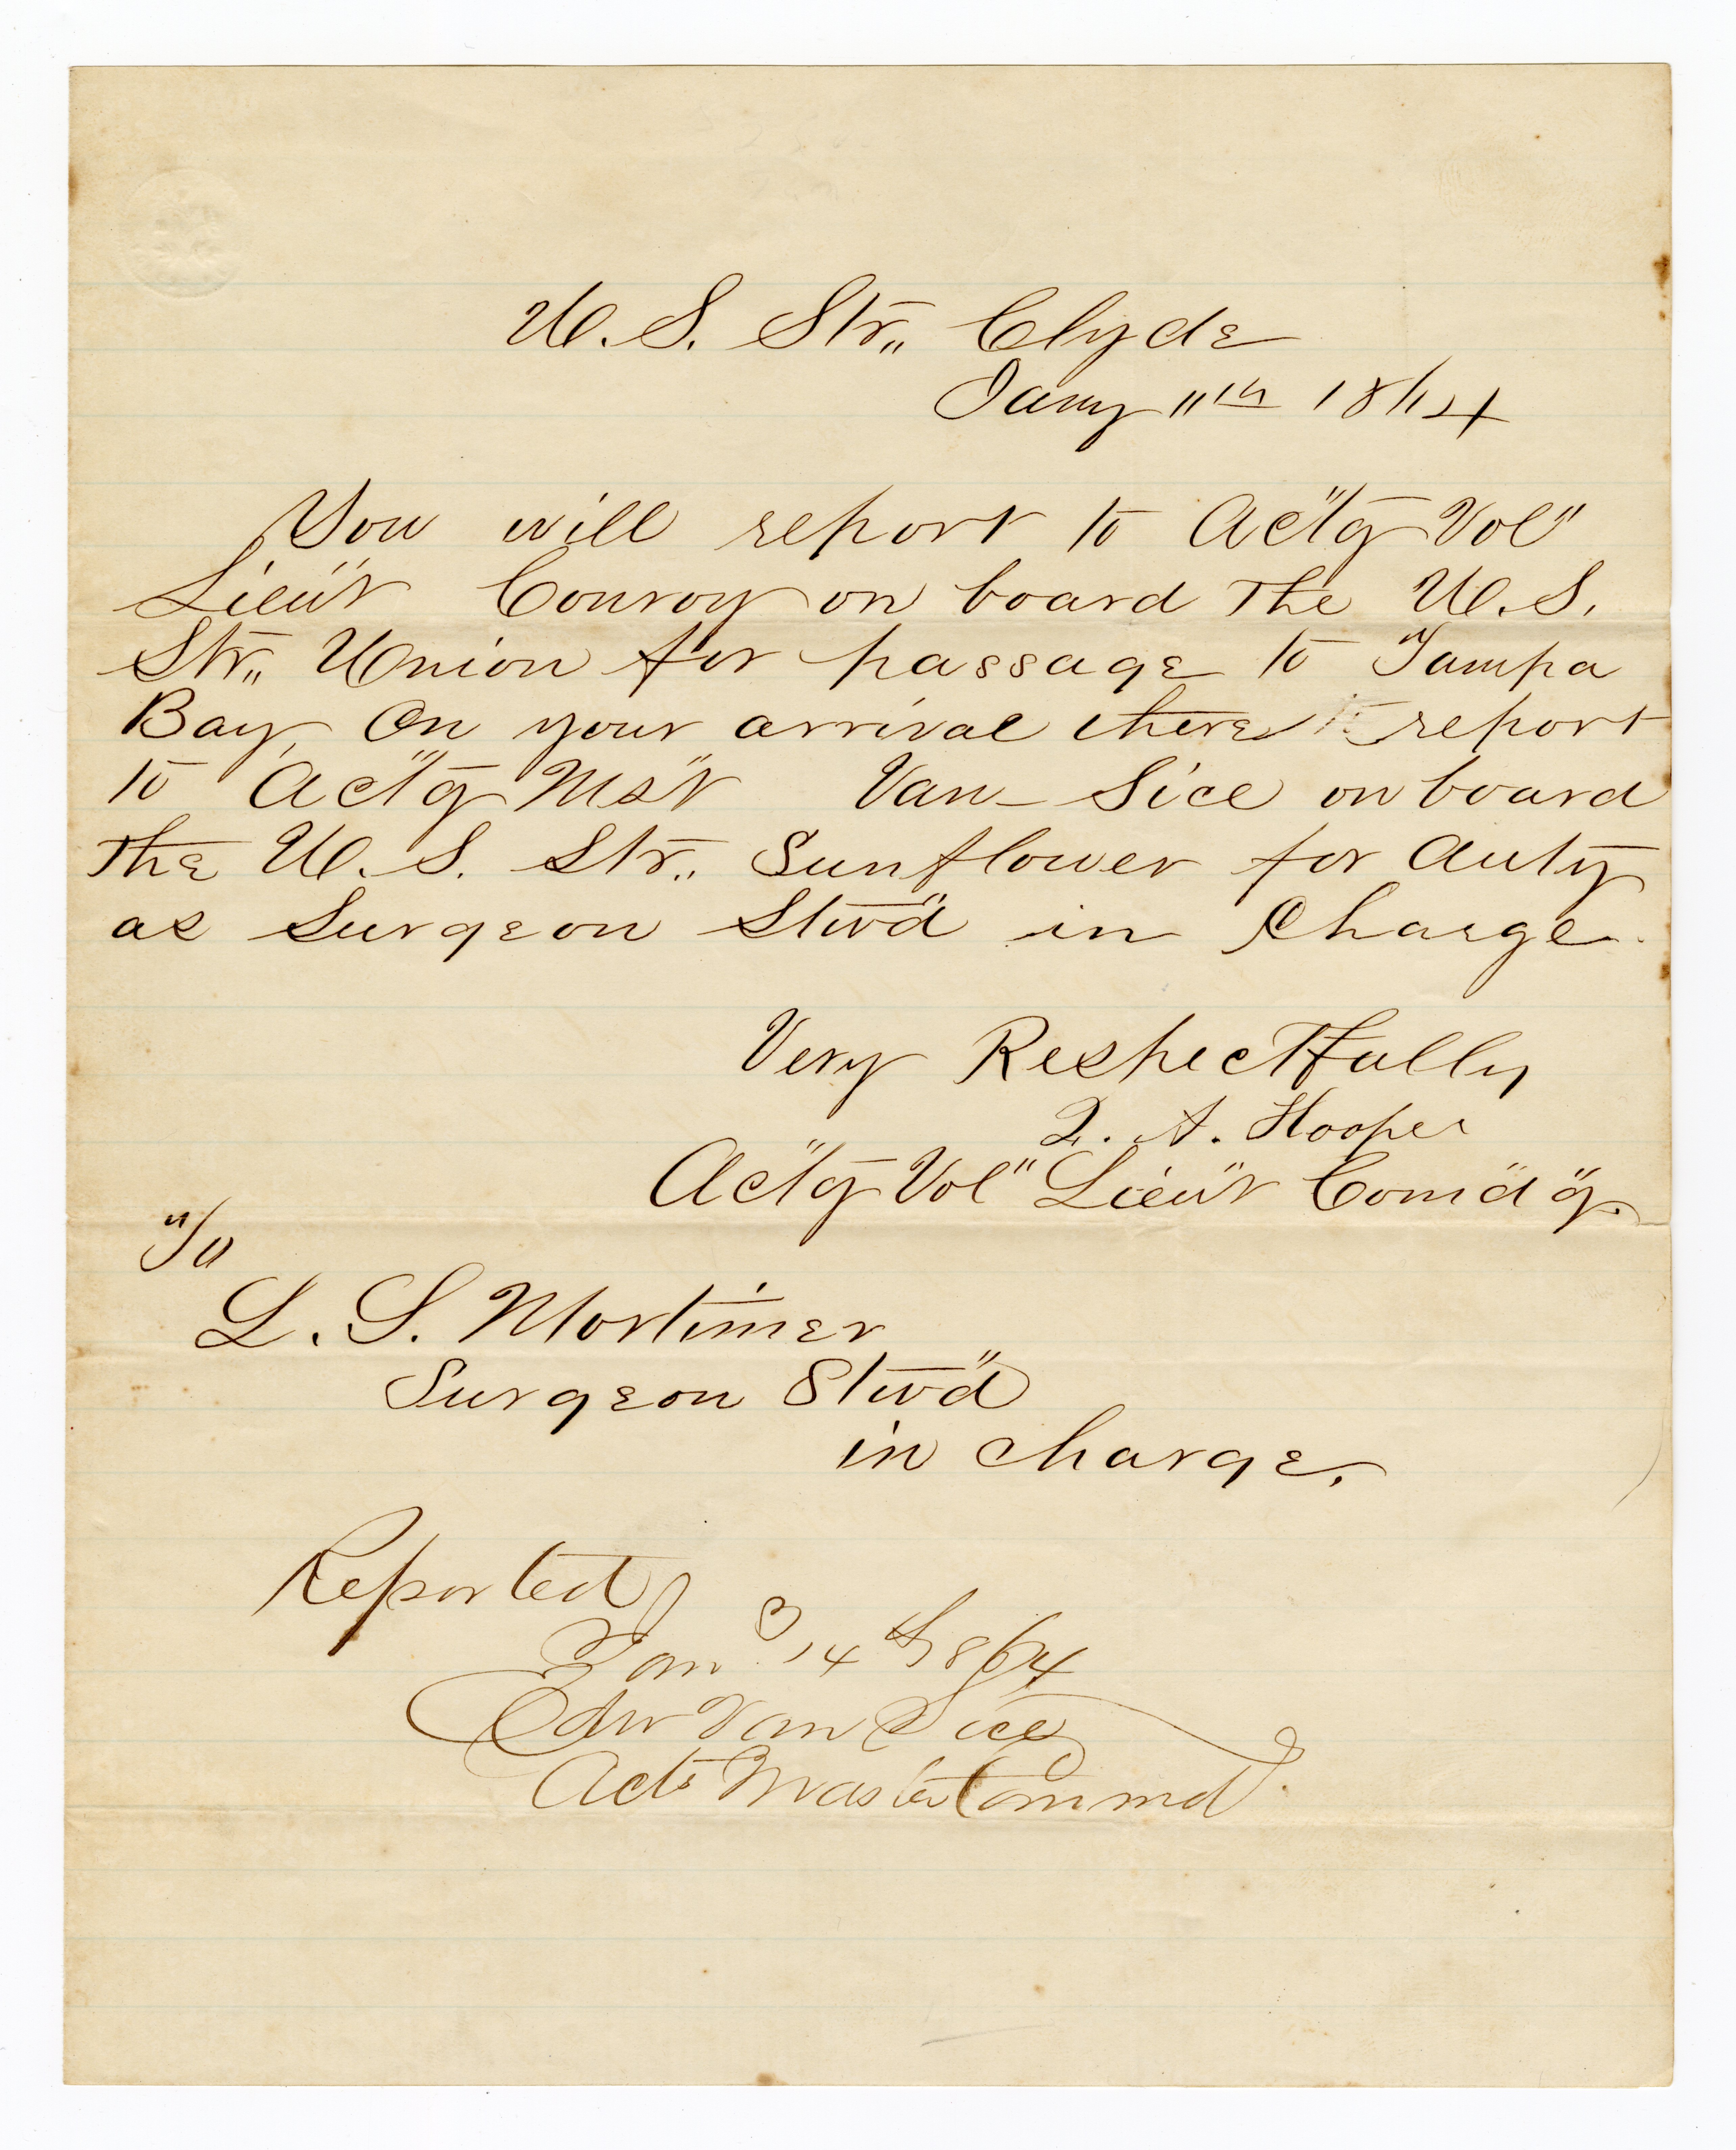 U.S. Str,, Clyde
Jany 11th 1864
You will report to Act"g Vol"
Lieu"t Conroy on board the U.S.
Str,, Union for passage to Tampa
Bay, On your arrival there report
to Act"g Mst" Van-Sice on board
the U.S. Str,, Sunflower for duty
as Surgeon Stw"d in Charge.
Very Respectfully
Q. A. Hooper
Act"g Vol" Lieu"t Comd"g.
To
L. S. Mortimer
Surgeon Stw"d
in charge.
Reported
Jany 14th 1864
Edw Van Sice
Actg Master Commd